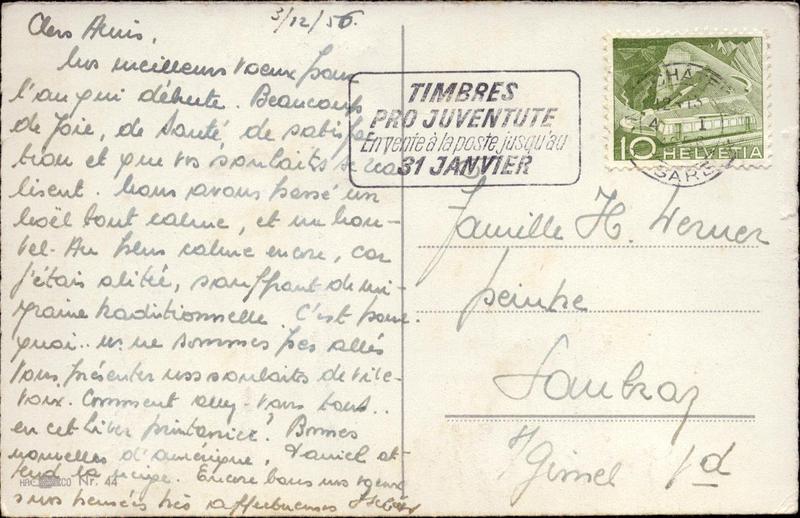 3/12/56.
Chers Amis,
Nos meilleurs voeux pour
l'an qui débute. Beaucoup
de joie, de santé, de satisfac
tion et que vos souhaits se réa
lisent. Nous avons passé un
Noël tout calme, et un nou-
vel-An bien calme encore, car
j'étais alitée, souffrant de mi-
graine traditionnelle. C'est pour
quoi.. ns. ne sommes pas allés
vous présenter nos souhaits de vive-
voix. Comment allez-vous tous..
en cet hiver printanier? Bonnes
nouvelles d'Amérique, Daniel at-
tend la neige. Encore tous nos voeux
& nos pensées très affectueuses
TIMBRES
PRO JUVENTUTE
En vente à la poste jusqu'au
31 JANVIER
10 HELVETIA
GARE
Famille H. Werner
peintre
s/Gimel Vd
Nr. 44